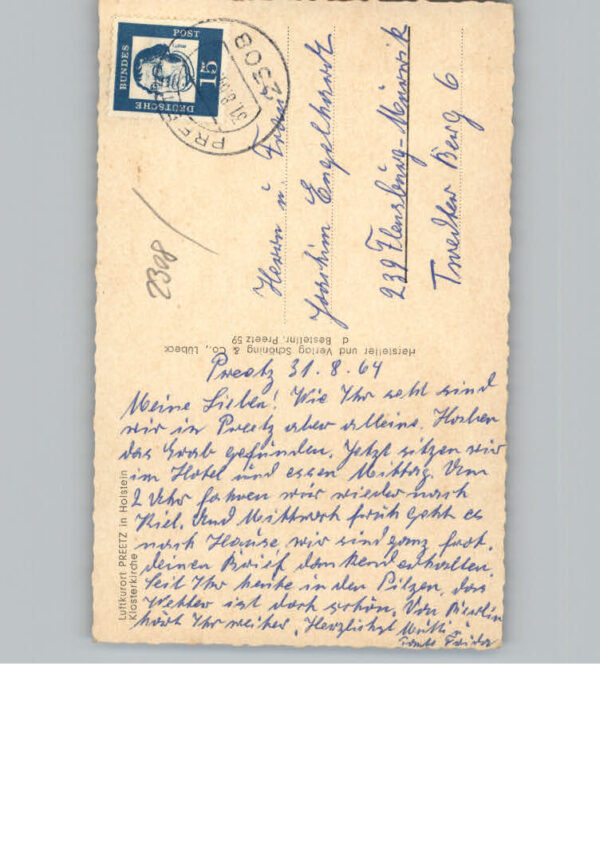 DEUTSCHE
BUNDES
POST
15
2308
PREETZ
31.8.64
2308
Herrn u. Frau
Joachim Engelhardt
239 Flensburg-Mürwik
Twedter Berg 6
Hersteller und Verlag Schöning & Co., Lübeck
Bestellnr. Preetz 59
Luftkurort PREETZ in Holstein
Klosterkirche
Preetz 31.8.64
Meine Lieben! Wie Ihr seht sind
wir in Preetz aber alleine. Haben
das Grab gefunden. Jetzt sitzen wir
im Hotel und essen Mittag. Um
2 Uhr fahren wir wieder nach
Kiel. Und Mittwoch früh geht es
nach Hause, wir sind ganz
deinen Brief dankend erhalten.
Seit Ihr heute in den Pilzen, das
Wetter ist doch schön. Von Berlin
hört Ihr weiter. Herzlichst Mutti
Tante Frida